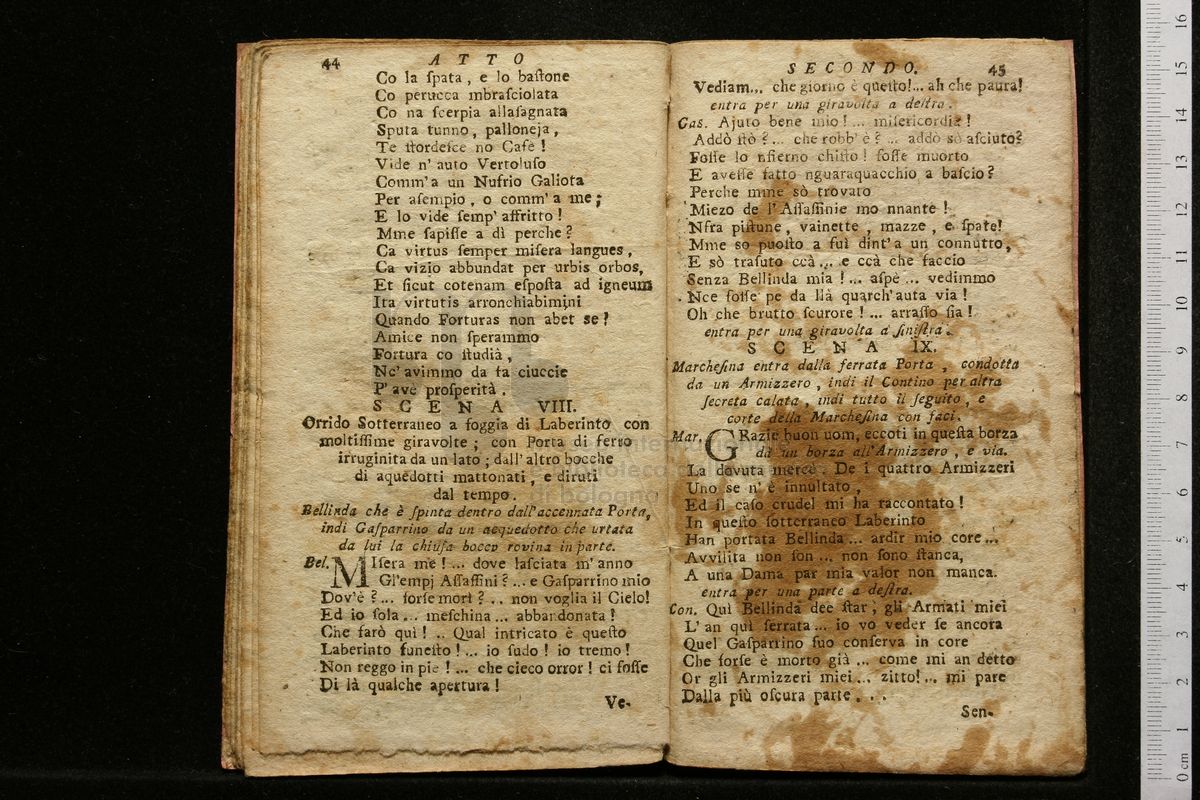 44 ATTO
Co la ſpata, e lo baſtone
Co perucca mbraſciolata
Co na ſcerpia allaſagnata
Sputa tunno, palloneja,
Te ſtordeſce no Cafè!
Vide n' auto Vertoluſo
Comm' a un Nufrio Galiota
Per aſempio, o comm' a me;
E lo vide ſemp' affritto!
Mme ſapiſſe a dì perche?
Ca virtus ſemper miſera langues,
Ca vizio abbundat per urbis orbos,
Et ſicut cotenam eſpoſta ad igneum
Ita virtutis arronchiabimini
Quando Forturas non abet se?
Amice non ſperammo
Fortura co ſtudià,
Nc' avimmo da fa ciuccie
P' avè proſperità.
SCENA VIII.
Orrido Sotterraneo a foggia di Laberinto con
moltiſſime giravolte; con Porta di ferro
irruginita da un lato; dall' altro bocche
di aquedotti mattonati, e diruti
dal tempo.
Bellinda che è ſpinta dentro dall' accennata Porta,
indi Gaſparrino da un acquedotto che urtata
da lui la chiuſa bocco rovina in parte.
Bel. MIſera me!... dove laſciata m' anno
Gl' empj Aſſaſſini?... e Gaſparrino mio
Dov'è?... forſe morì?... non voglia il Cielo!
Ed io ſola... meſchina... abbandonata!
Che farò quì!.. Qual intricato è queſto
Laberinto funeſto!... io ſudo! io tremo!
Non reggo in piè!... che cieco orror! ci foſſe
Di là qualche apertura!
Ve-
SECONDO. 45
Vediam... che giorno è queſto!... ah che paura!
entra per una giravolta a deſtra.
Gas. Ajuto bene mio!... miſericordia!
Addò ſtò?... che robb' è?... addò sò aſciuto?
Foſſe lo nfierno chiſto! foſſe muorto
E aveſſe fatto nguaraquacchio a baſcio?
Perche mme sò trovato
Miezo de l' Aſſaſſinie mo nnante!
Nfra piſtune, vainette, mazze, e ſpate!
Mme so puoſto a fuì dint' a un connutto,
E sò traſuto ccà... e ccà che faccio
Senza Bellinda mia!... aſpè... vedimmo
Nce foſſe pe da llà quarch' auta via!
Oh che brutto ſcurore!... arraſſo ſia!
entra per una giravolta a ſiniſtra.
SCENA IX.
Marcheſina entra dalla ferrata Porta, condotta
da un Armizzero, indi il Contino per altra
ſecreta calata, indi tutto il ſeguito, e
corte della Marcheſina con faci.
Mar. GRazie buon uom, eccoti in queſta borza
dà un borza all' Armizzero, e via.
La dovuta mercè. De i quattro Armizzeri
Uno se n' è innultato,
Ed il caſo crudel mi ha raccontato!
In queſto ſotterraneo Laberinto
Han portata Bellinda... ardir mio core...
Avvilita non ſon... non ſono ſtanca,
A una Dama par mia valor non manca.
entra per una parte a deſtra.
Con. Quì Bellinda dee ſtar; gli Armati miei
L' an quì ſerrata... io vo veder ſe ancora
Quel Gaſparrino ſuo conſerva in core
Che forſe è morto già... come mi an detto
Or gli Armizzeri miei... zitto!... mi pare
Dalla più oſcura parte...
Sen-